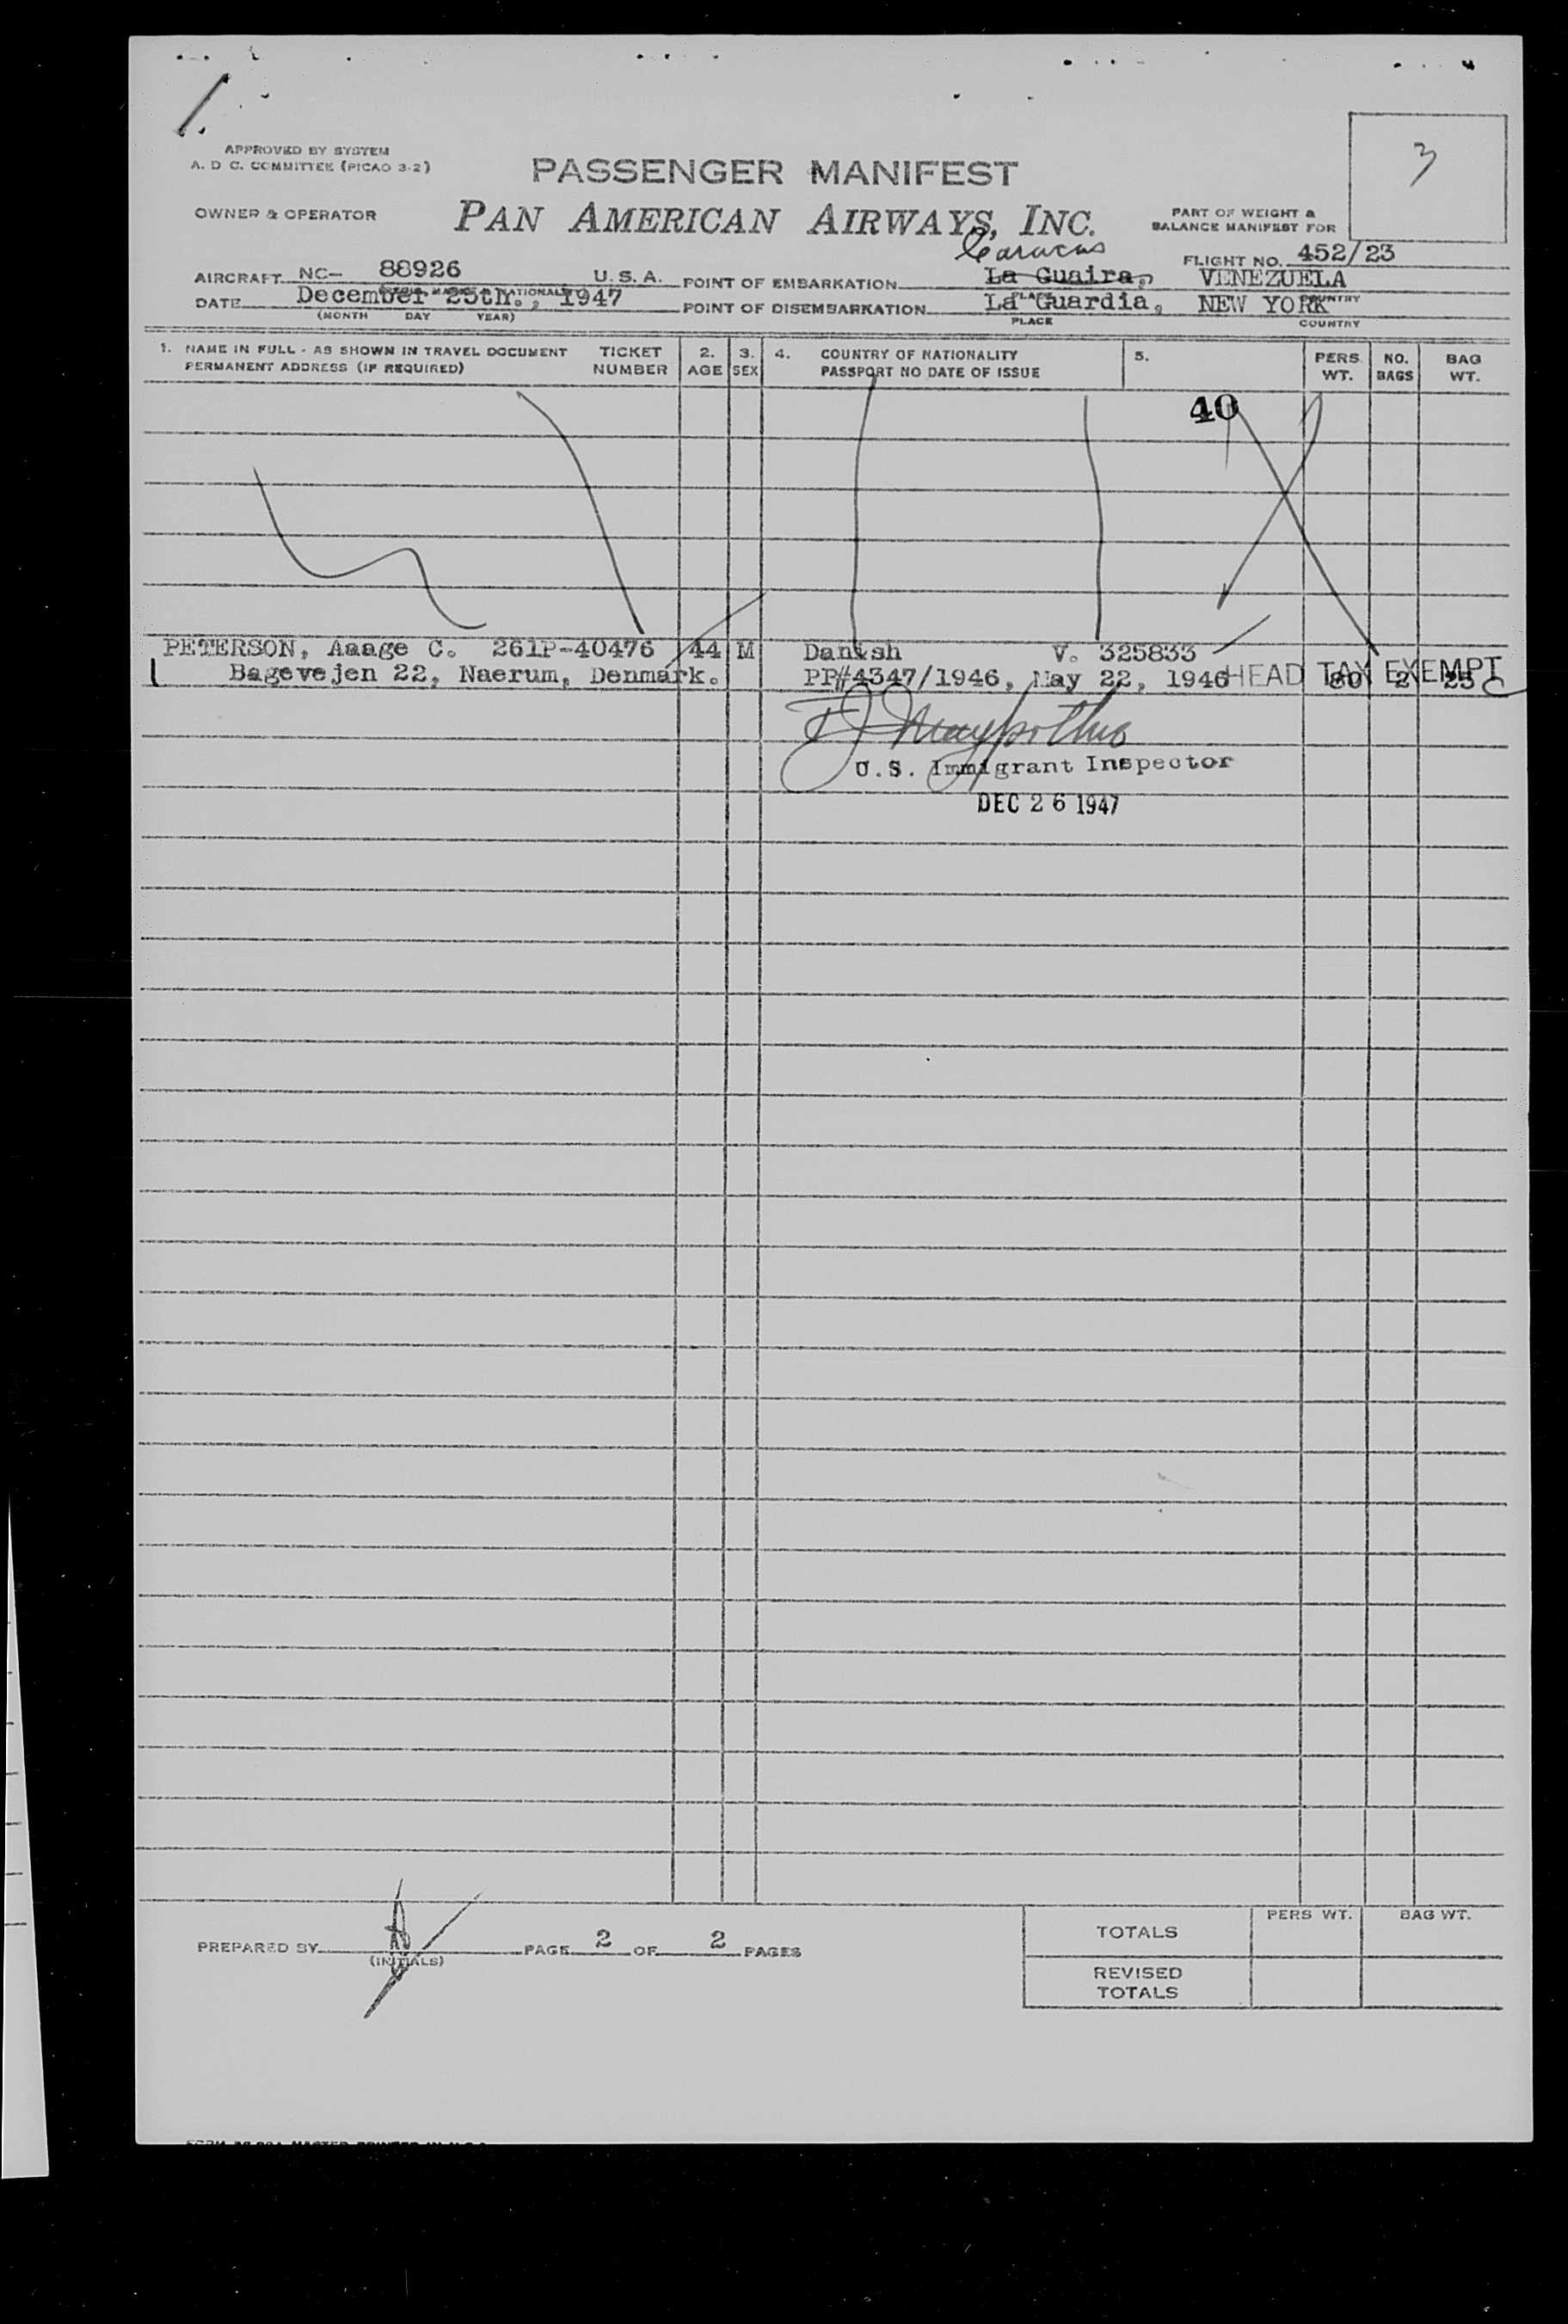 1.
3
APPROVED BY SYSTEM
A. D C. COMMITTEE (PICAO 3-2)
PASSENGER MANIFEST
OWNER & OPERATOR
PAN AMERICAN AIRWAYS, INC.
PART OF WEIGHT &
BALANCE MANIFEST FOR
Caracas
FLIGHT NO. 452/23
AIRCRAFT NC- 88926 U. S. A. POINT OF EMBARKATION La Guaira, VENEZUELA
DATE December 25th., 1947 POINT OF DISEMBARKATION La Guardia, NEW YORK
(MONTH DAY YEAR) PLACE COUNTRY
1. NAME IN FULL - AS SHOWN IN TRAVEL DOCUMENT TICKET 2. 3. 4. COUNTRY OF NATIONALITY 5. PERS. NO. BAG
PERMANENT ADDRESS (IF REQUIRED) NUMBER AGE SEX PASSPORT NO DATE OF ISSUE WT. BAGS WT.
40
PETERSON, Aaage C. 261P-40476 44 M Danish V. 325833
1 Bagevejen 22, Naerum, Denmark. PP#4347/1946, May 22, 1946 HEAD TAX EXEMPT 80 2 25 C
U.S. Immigrant Inspector
DEC 26 1947
PREPARED BY (INITIALS) PAGE 2 OF 2 PAGES
PERS WT. BAG WT.
TOTALS
REVISED
TOTALS